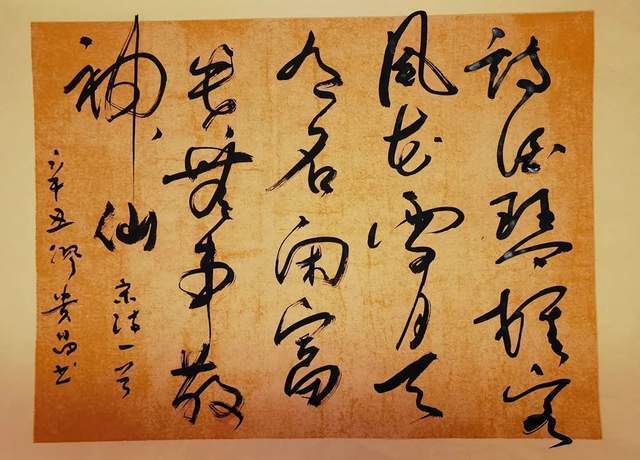 詩酒琴棋客
風花雪月天
有名闲富
貴無事散
神仙
宋诗一首
辛丑 贵昌书